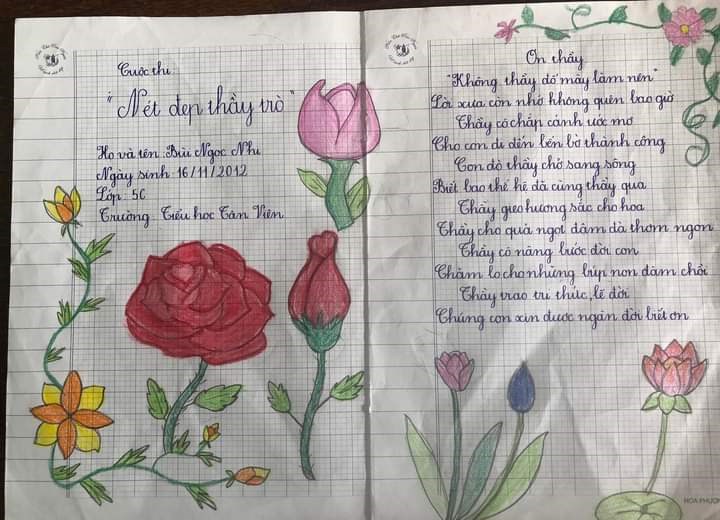 Cuộc thi:
"Nét đẹp thầy trò"
Họ và tên: Bùi Ngọc Nhi
Ngày sinh 16/11/2012
Lớp: 5C
Trường Tiểu học Tân Viên
Ơn thầy
"Không thầy đố mày làm nên"
Lời xưa còn nhớ không quên bao giờ
Thầy cô chắp cánh ước mơ
Cho con đi đến bến bờ thành công
Con đò thầy chở sang sông
Biết bao thế hệ đã cùng thầy qua
Thầy gieo hương sắc cho hoa
Thầy cho quả ngọt đậm đà thơm ngon
Thầy cô nâng bước đời con
Chăm lo cho những búp non đâm chồi
Thầy trao tri thức, lẽ đời
Chúng con xin được ngàn đời biết ơn